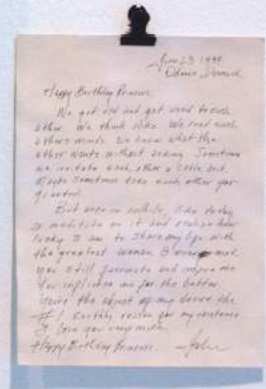 June 23 1994
Odense Denmark
Happy Birthday Princess
We get old and get used to each
other. We think alike. We read each
others minds. We know what the
other wants without asking. Sometimes
we irritate each other a little bit.
Maybe sometimes take each other for
granted.
But once in awhile, like today
I meditate on it and realize how
lucky I am to share my life with
the greatest woman I ever met.
You still fascinate and inspire me
You influence me for the better.
You're the object of my desire, the
#1 Earthly reason for my existence
I love you very much
Happy Birthday Princess
John